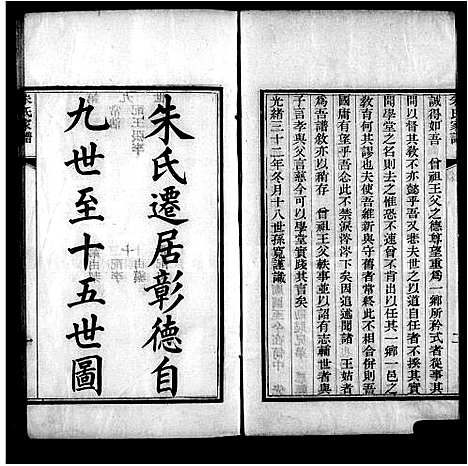 誠得如吾　曾祖王父之德尊望重爲一鄉所矜式者從事其
間以督其敎不亦懿乎吾又悉夫世之以道自任者不深
問學堂之名則去之惟恐不速曾不肯出以任其一鄉一邑之
敎育何其謬也夫使吾維新與守舊者常兩不相合併則吾
國庸有望乎吾念此不禁淚涔涔下矣因追述聞諸　王姑者
爲吾譜敘亦以稍存　曾祖王父軼事並以詔有志輔世者與
子言孝與父言慈今可以學堂實踐其言矣
光緒三十二年冬月十八世孫寬謹識
朱氏遷居彰德自
九世至十五世圖
朱氏家譜